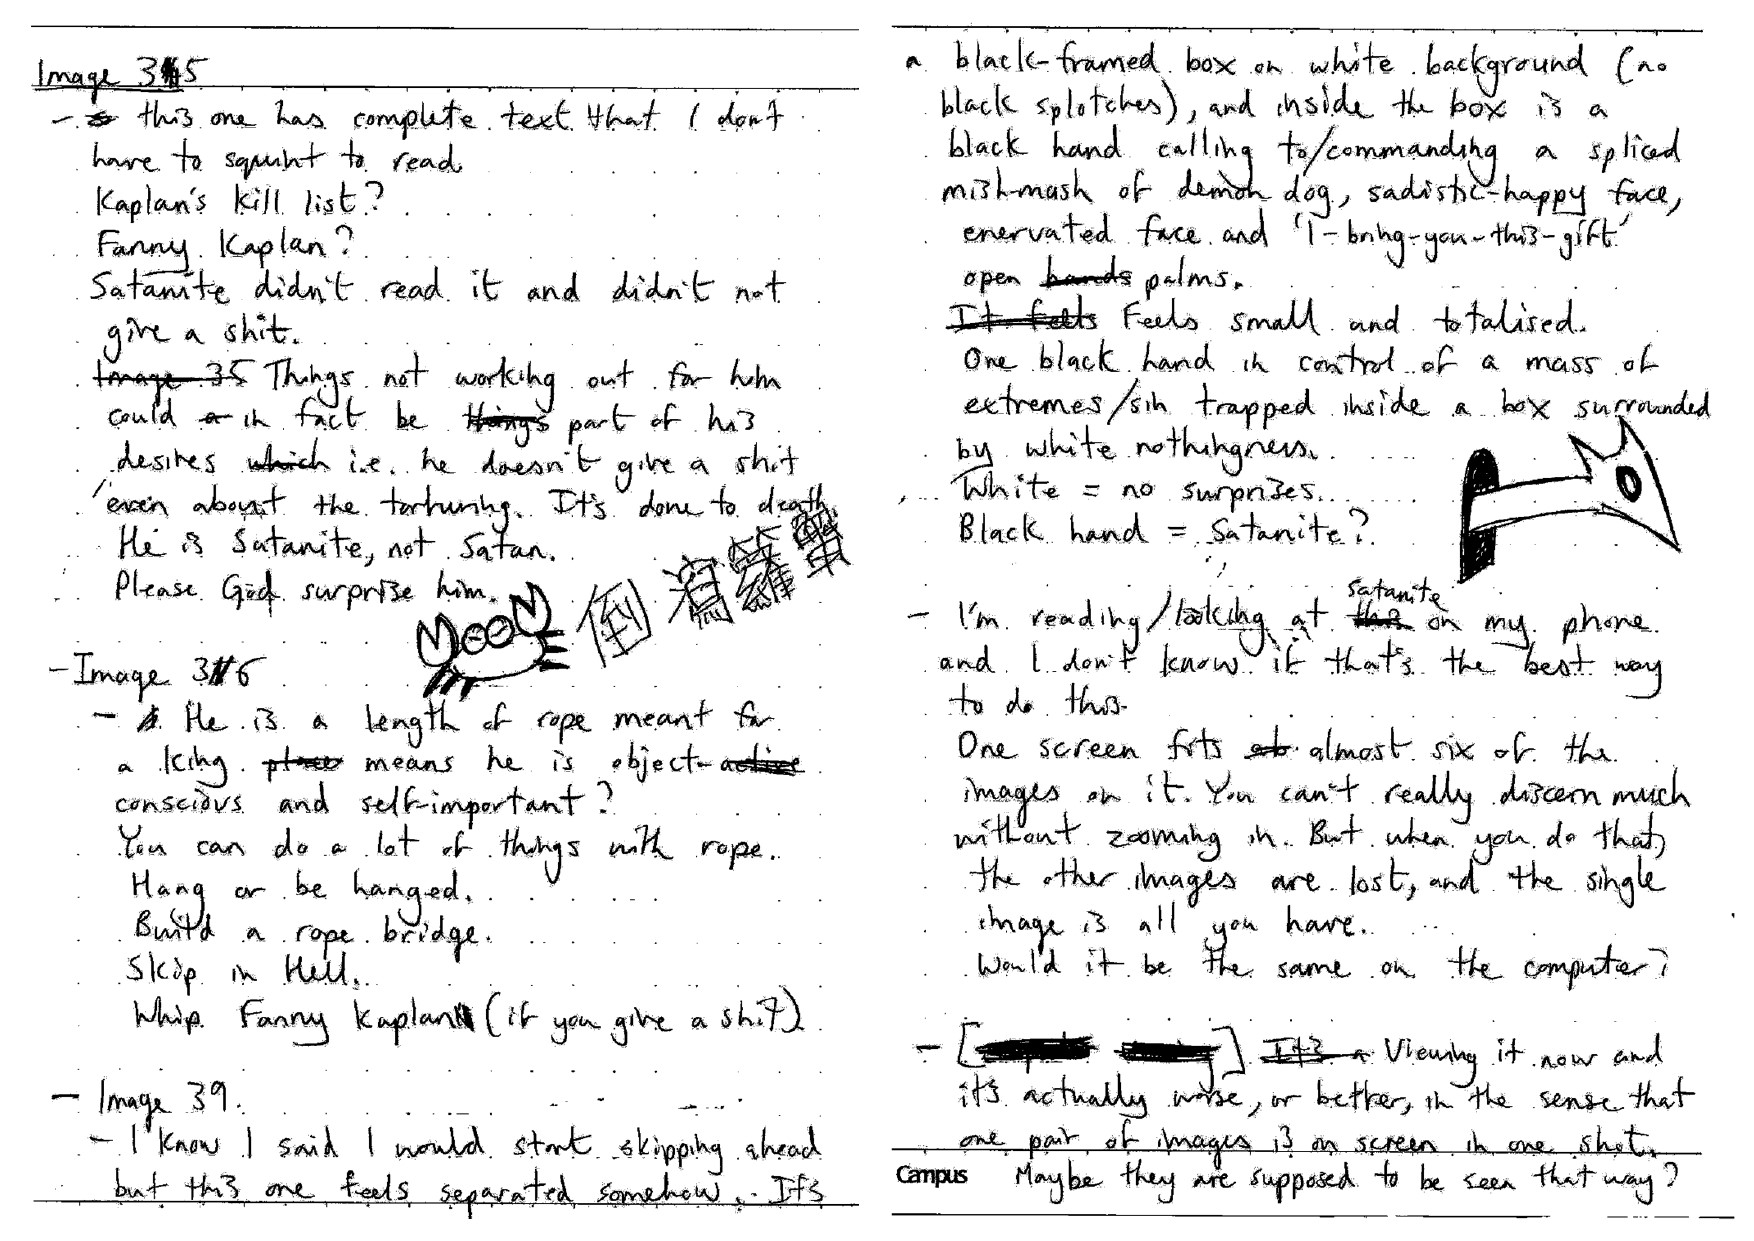 Image 35
- this one has complete text that I don't
have to squint to read.
Kaplan's kill list?
Fanny Kaplan?
Satanite didn't read it and didn't not
give a shit.
Image 35 Things not working out for him
could a in fact be things part of his
desires which i.e. he doesn't give a shit
even about the torturing. It's done to death.
He is Satanite, not Satan.
Please God surprise him.
倒瀉籮蟹
- Image 36
- He is a length of rope meant for
a king place means he is object-active
conscious and self-important?
You can do a lot of things with rope.
Hang or be hanged.
Build a rope bridge.
Skip in Hell.
Whip Fanny Kaplan (if you give a shit)
- Image 39.
- I know I said I would start skipping ahead
but this one feels separated somehow. It's
a black-framed box on white background (no
black splotches), and inside the box is a
black hand calling to/commanding a spliced
mish-mash of demon dog, sadistic-happy face,
enervated face and 'I-bring-you-this-gift'
open hands palms.
It feels Feels small and totalised.
One black hand in control of a mass of
extremes/sin trapped inside a box surrounded
by white nothingness.
White = no surprises.
Black hand = Satanite?
satanite
- I'm reading/looking at this on my phone
and I don't know if that's the best way
to do this.
One screen fits almost six of the
images on it. You can't really discern much
without zooming in. But when you do that,
the other images are lost, and the single
image is all you have.
Would it be the same on the computer?
- [ ] It's a Viewing it now and
it's actually worse, or better, in the sense that
one pair of images is on screen in one shot.
Campus Maybe they are supposed to be seen that way?